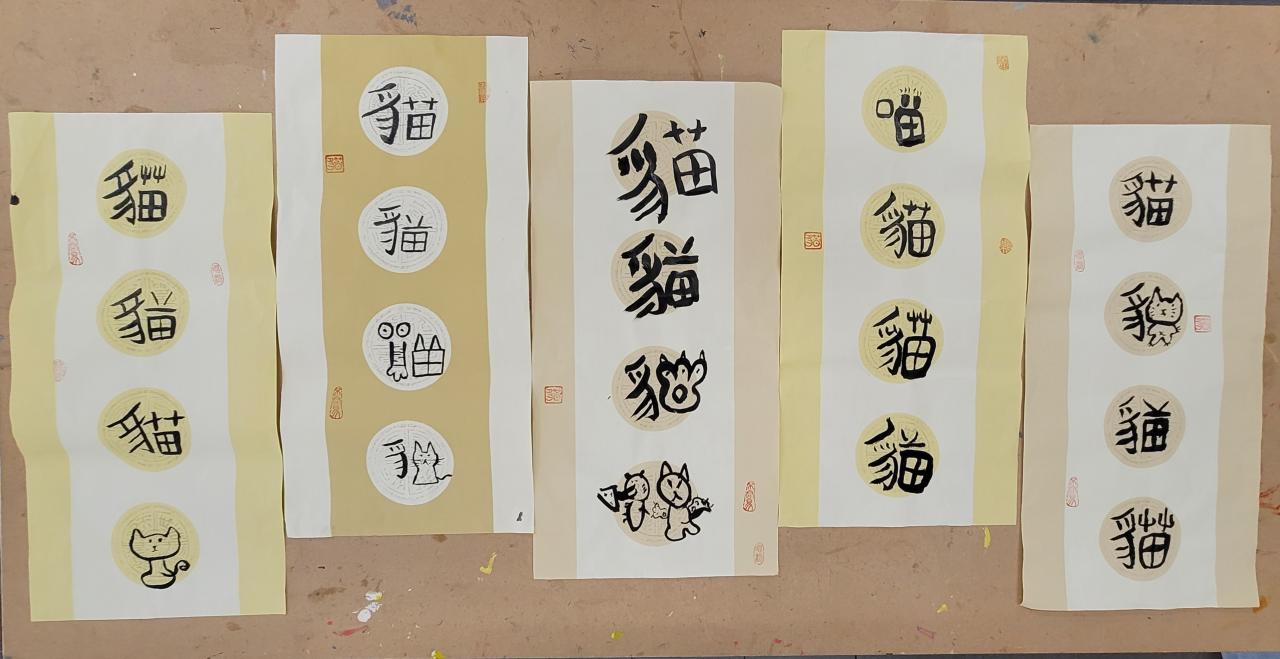 貓
貓
貓
貓
貓
貓
貓
貓
喵
貓
貓
貓
貓
貓
貓